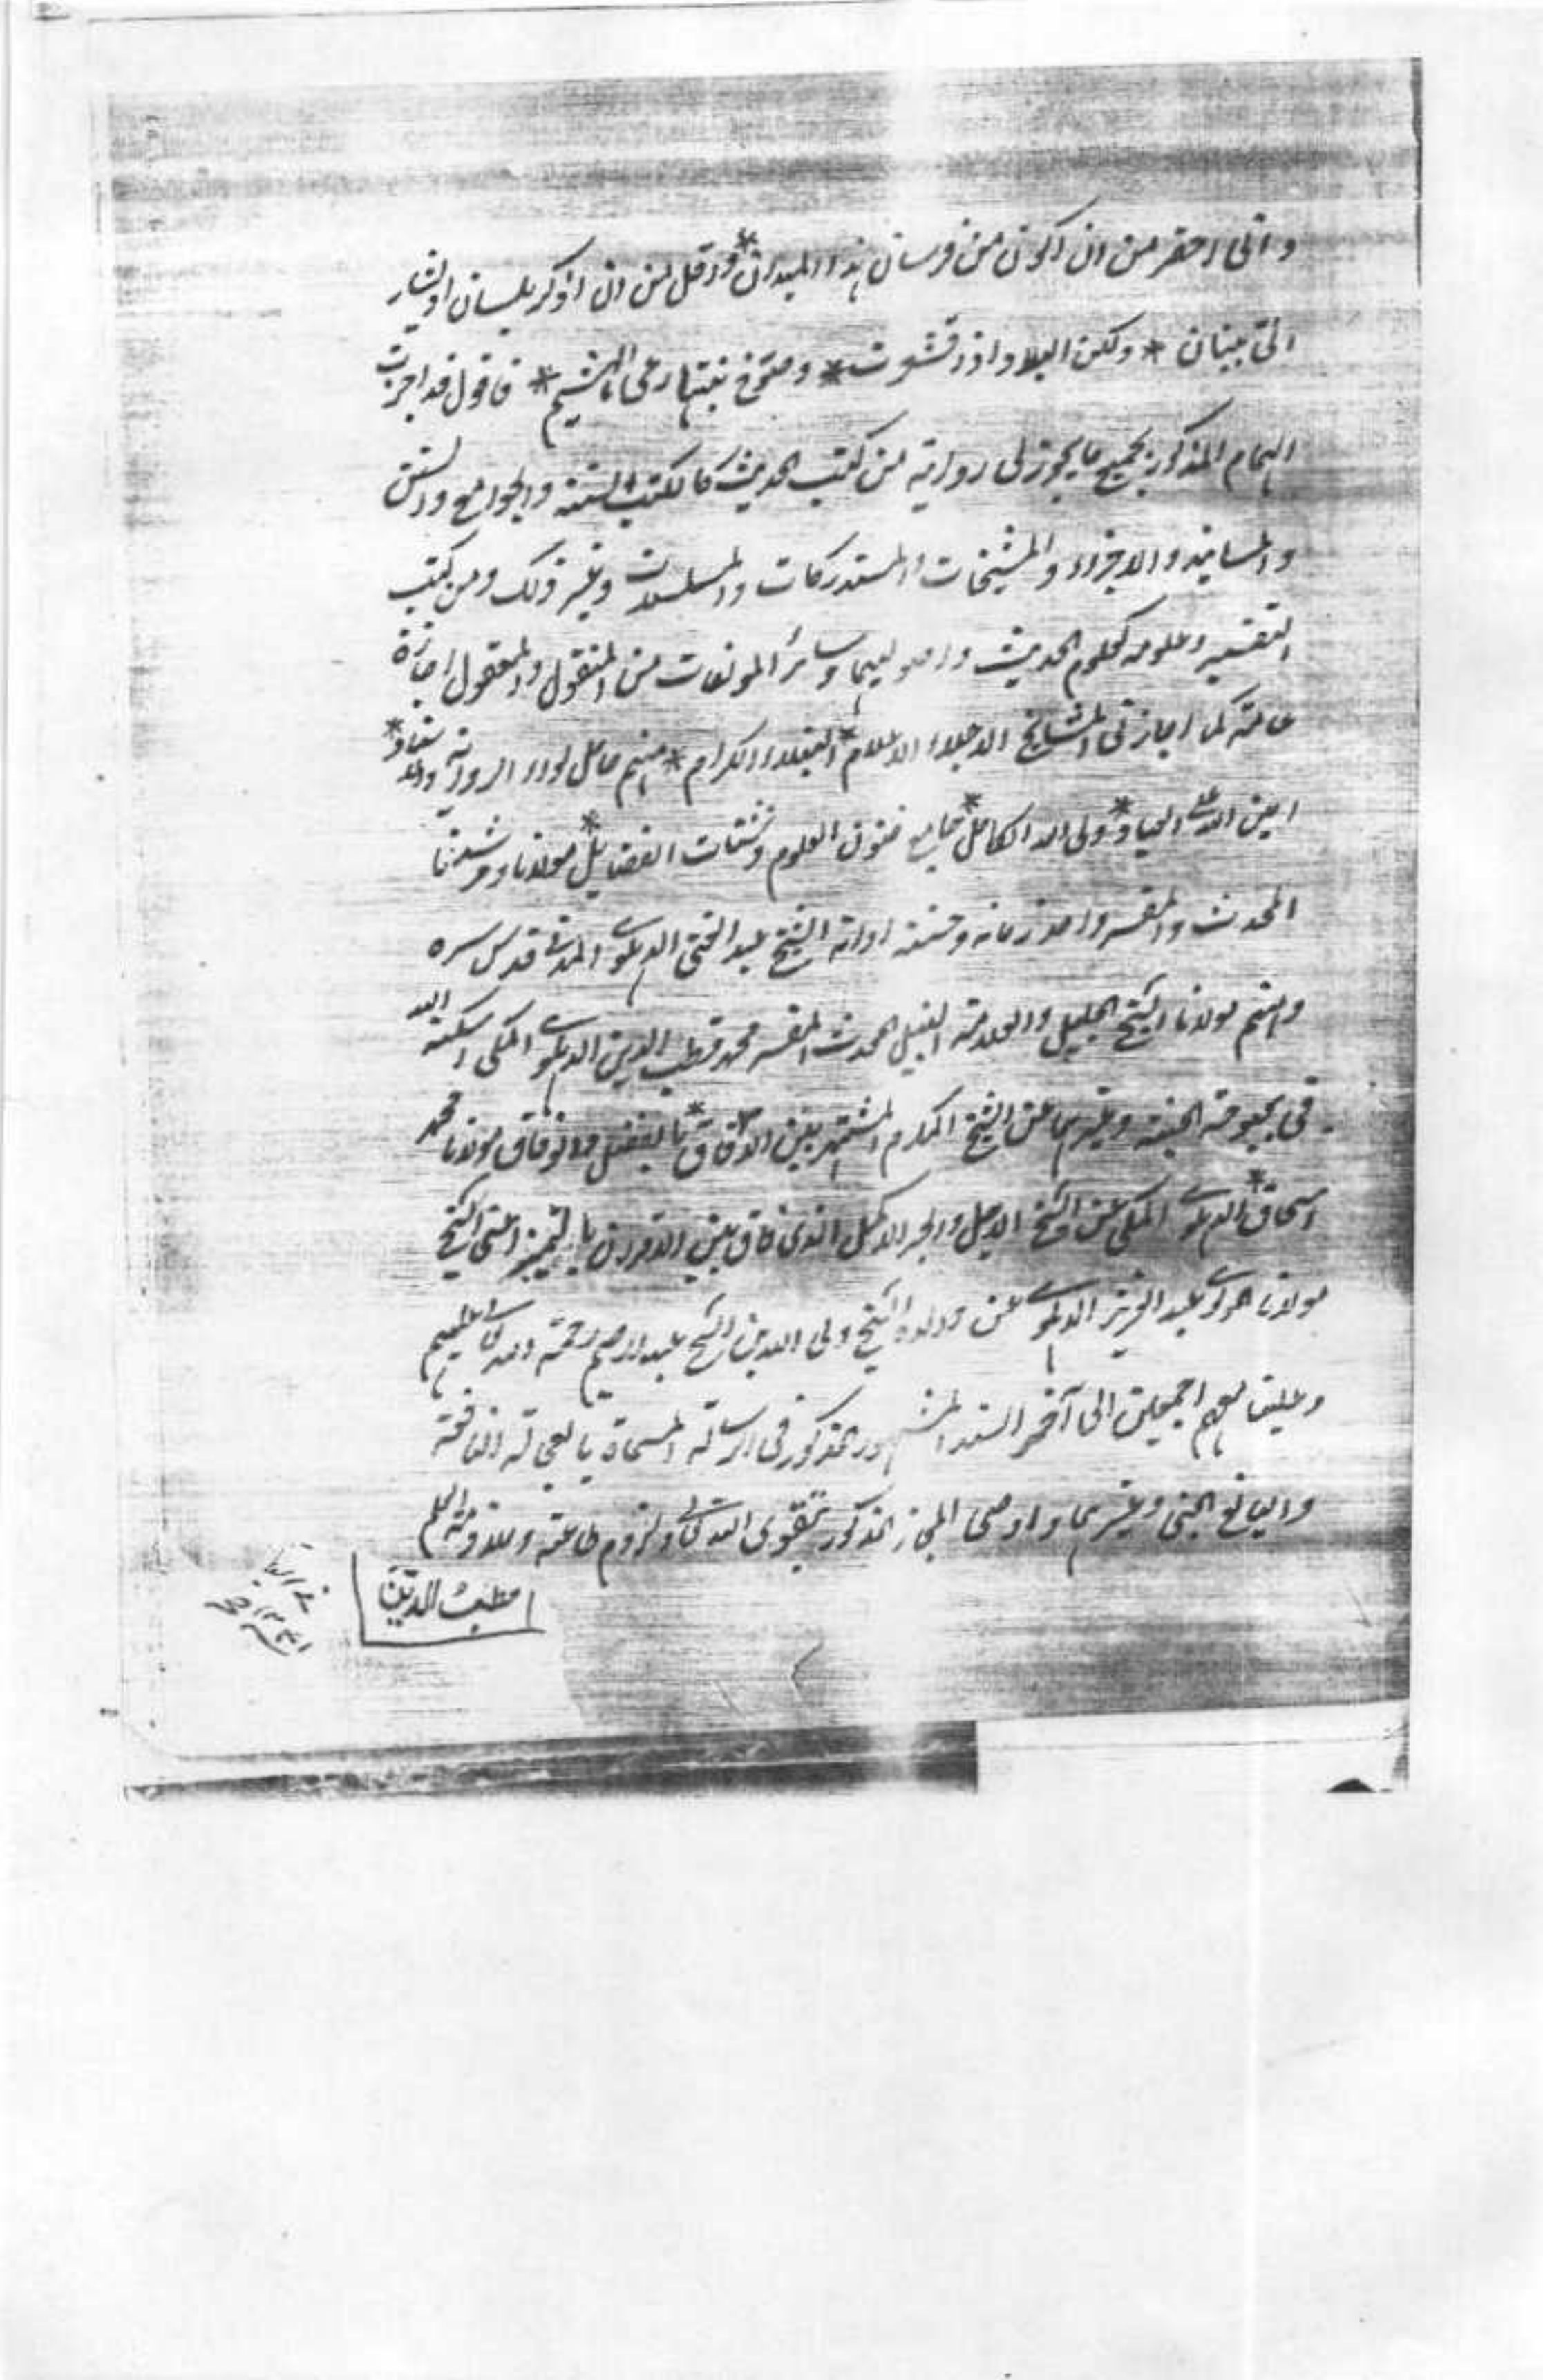 وانى احقر من ان اكون من فرسان هذا الميدان * واقل من ان اذكر بلسان او يشار
الىّ ببنان * ولكن البلاد اذا اقشعرت * وصوّح نبتها رعى الهشيم * فاقول قد اجزت
الهمام المذكور بجميع ما يجوز لى روايته من كتب الحديث كالكتب الستة والجوامع والسنن
والمسانيد والاجزاء والمشيخات والمستدركات والمسلسلات وغير ذلك ومن كتب
التفسير وعلومه كعلوم الحديث واصوليهما وسائر المولفات من المنقول والمعقول اجازة
عامة كما اجازنى المشايخ الاجلاء الاعلام * الفضلاء الكرام * منهم حامل لواء الرواية
امين الله على العباد * ولى الله الكامل * جامع فنون العلوم وشتات الفضايل * مولانا ومرشدنا
المحدث والمفسر واحد زمانه وحسنة اوانه الشيخ عبد الغنى الدهلوى المدنى قدس سره
ومنهم مولانا الشيخ الجليل والعلامة النبيل المحدث المفسر محمد قطب الدين الدهلوى المكى اسكنه الله
فى بحبوحة الجنة وغيرهما عن الشيخ المكرم المشتهر بين الآفاق * بالفضل والوفاق مولانا محمد
اسحاق * الدهلوى المكى عن الشيخ الاجل والحبر الاكمل الذى فاق بين الاقران بالتميز اعنى الشيخ
مولانا عبد العزيز الدهلوى عن والده الشيخ ولى الله بن الشيخ عبد الرحيم رحمة الله تعالى عليهم
وعلينا معهم اجمعين الى آخر السند المشهور المذكور فى الرسالة المسماة بالعجالة النافعة
واليانع الجنى وغيرهما واوصى المجاز المذكور بتقوى الله تعالى ولزوم طاعته وملازمة العلم